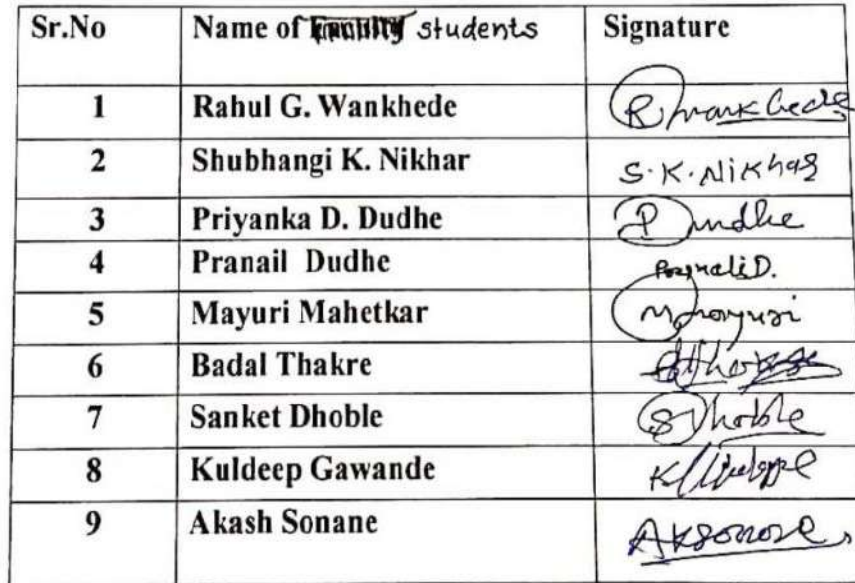 Sr.No Name of Faculty students Signature
1 Rahul G. Wankhede R Wankhede
2 Shubhangi K. Nikhar S.K.Nikhar
3 Priyanka D. Dudhe P Dudhe
4 Pranail Dudhe Pranali D.
5 Mayuri Mahetkar Mayuri
6 Badal Thakre
7 Sanket Dhoble SDhoble
8 Kuldeep Gawande
9 Akash Sonane AKSonone